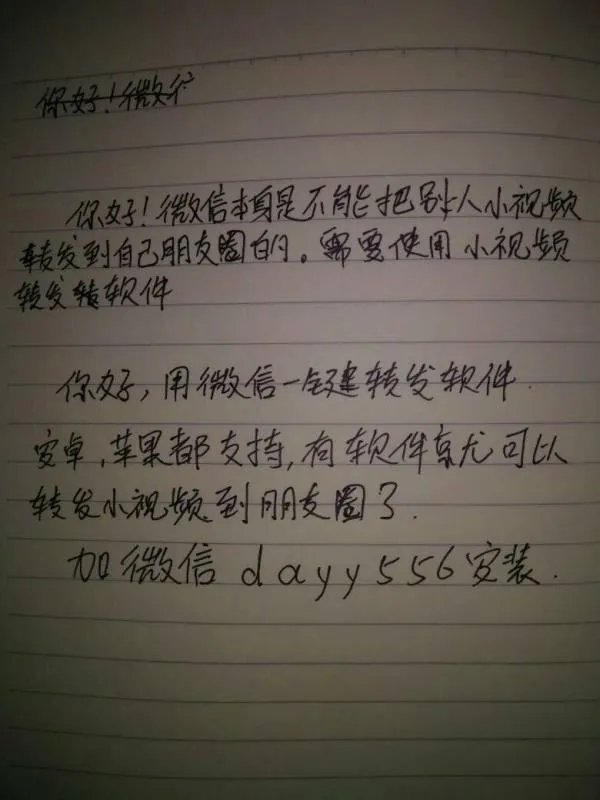 你好！微彳
你好！微信本身是不能把别人小视频
转发到自己朋友圈的。需要使用小视频
转发转软件
你好，用微信一键转发软件.
安卓,苹果都支持,有软件就可以
转发小视频到朋友圈了.
加微信dayy556安装.